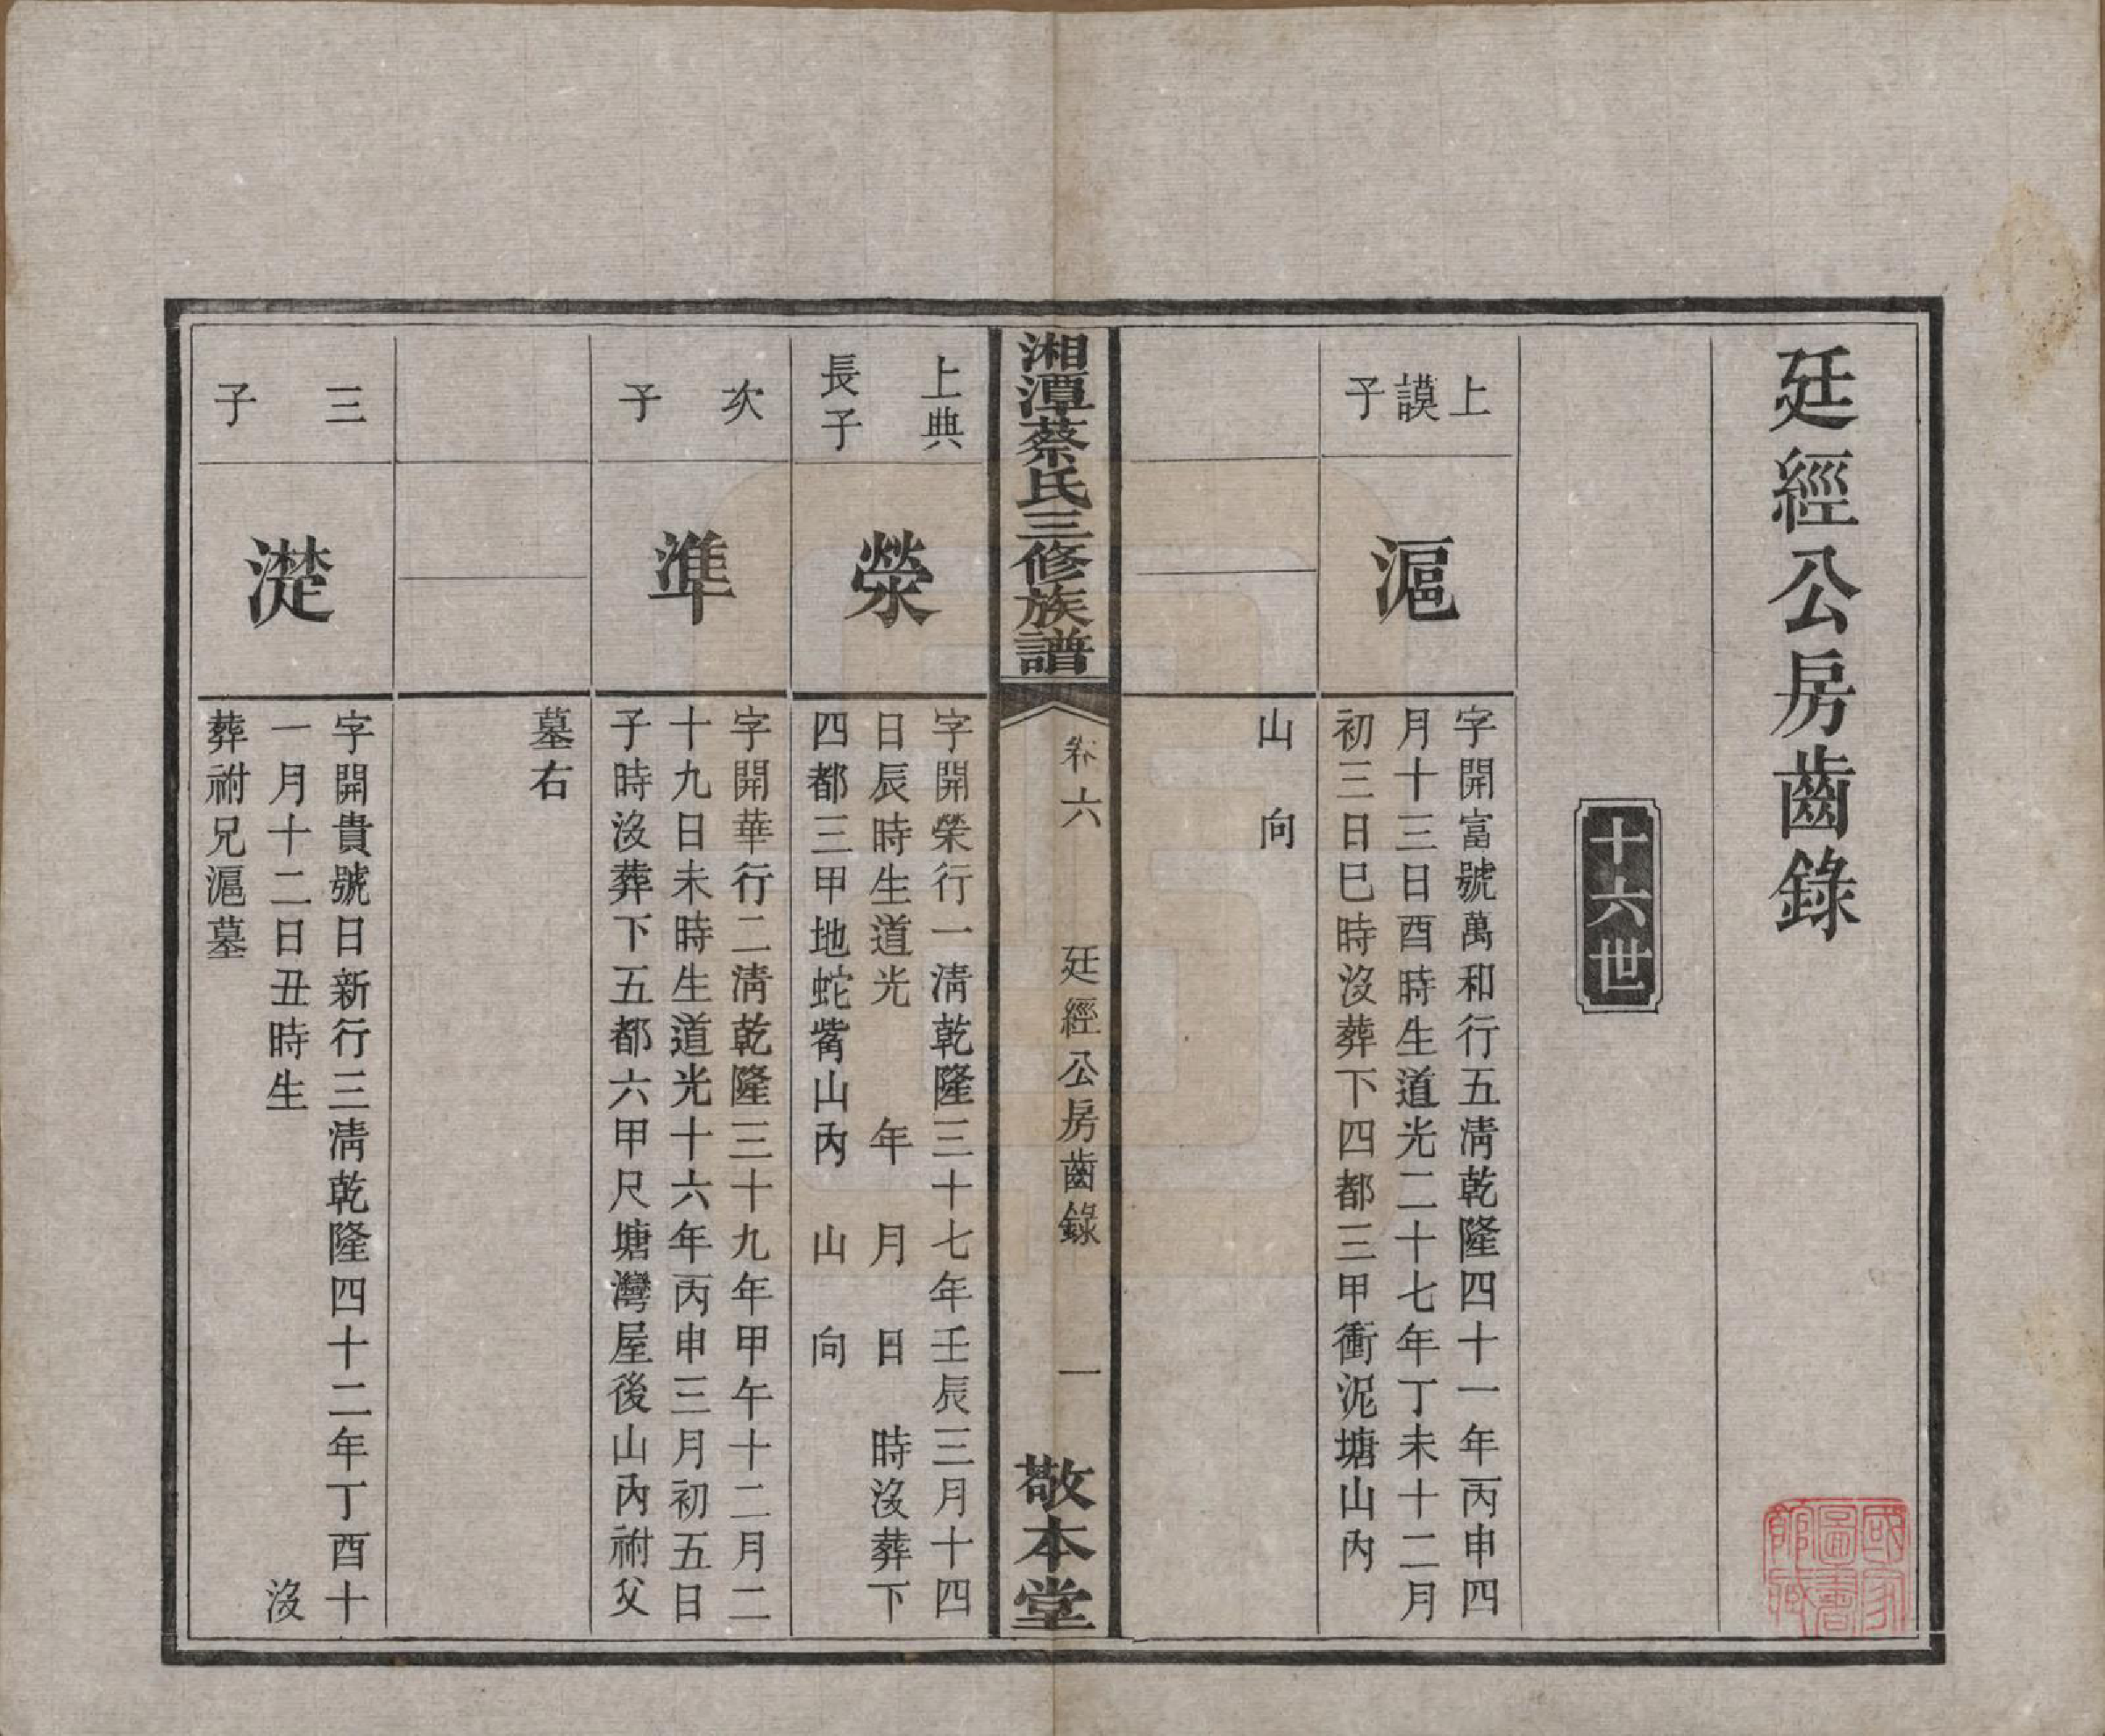 廷經公房齒錄
十六世
上
謨
子
滬
字開富號萬和行五淸乾隆四十一年丙申四
月十三日酉時生道光二十七年丁未十二月
初三日巳時沒葬下四都三甲衝泥塘山內
山　向
湘潭蔡氏三修族譜
卷六
廷經公房齒錄
一
敬本堂
上典
長子
滎
字開榮行一淸乾隆三十七年壬辰三月十四
日辰時生道光　年　月　日　時沒葬下
四都三甲地蛇嘴山內　山　向
次
子
準
字開華行二淸乾隆三十九年甲午十二月二
十九日未時生道光十六年丙申三月初五日
子時沒葬下五都六甲尺塘灣屋後山內祔父
墓右
三
子
濋
字開貴號日新行三淸乾隆四十二年丁酉十
一月十二日丑時生　沒
葬祔兄滬墓
國家
圖書
館藏